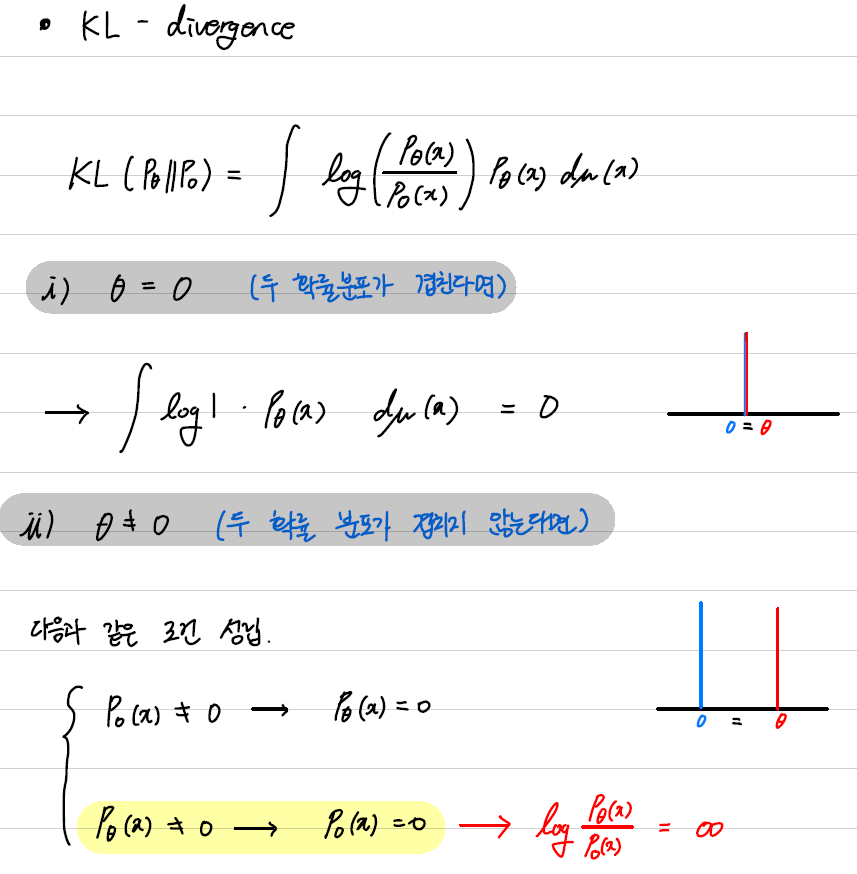 • KL - divergence
KL (P_θ ∥ P_0) = ∫ log( P_θ(x) / P_0(x) ) P_θ(x) dμ(x)
i) θ = 0 (두 확률분포가 겹친다면)
→ ∫ log 1 · P_θ(x) dμ(x) = 0
0 = θ
ii) θ ≠ 0 (두 확률 분포가 겹치지 않는다면)
다음과 같은 조건 성립.
{ P_0(x) ≠ 0 → P_θ(x) = 0
0 = θ
P_θ(x) ≠ 0 → P_0(x) = 0 → log P_θ(x) / P_0(x) = ∞